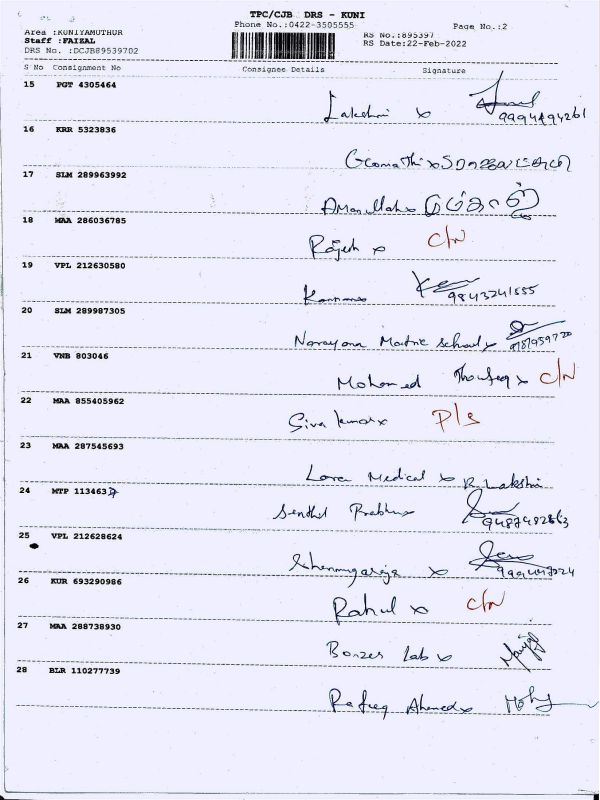 TPC/CJB DRS - KUNI
Phone No.:0422-3505555 Page No.:2
Area :KUNIYAMUTHUR RS No.:895397
Staff :FAIZAL RS Date:22-Feb-2022
DRS No. :DCJB89539702
S No Consignment No Consignee Details Signature
15 PGT 4305464
Lakshmi x
16 KRR 5323836
Gomathi x
17 SLM 289963992
Amanullah x
18 MAA 286036785
Rajesh x C/N
19 VPL 212630580
9843241555
20 SLM 289987305
Narayana Matric School x
21 VNB 803046
Mohamed Thoufeq x C/N
22 MAA 855405962
Siva kumar x P/s
23 MAA 287545693
Lora Medical x R. Lakshmi
24 MTP 1134637
Senthil Prabhu x
9487482663
25 VPL 212628624
Shanmugaraja x
26 KUR 693290986
Rahul x C/N
27 MAA 288738930
Borzes Lab x
28 BLR 110277739
Rafeeq Ahamed x